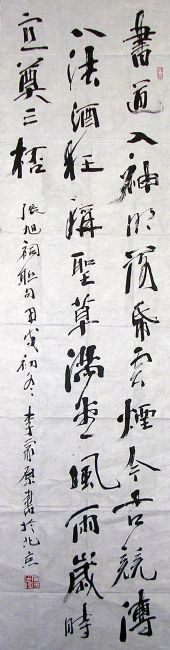 書道入神明落帋云煙今古競傳
八法酒狂稱聖草滿堂風雨歲時
宜奠三桮
張旭祠聯句甲戌初冬李家原書於北京